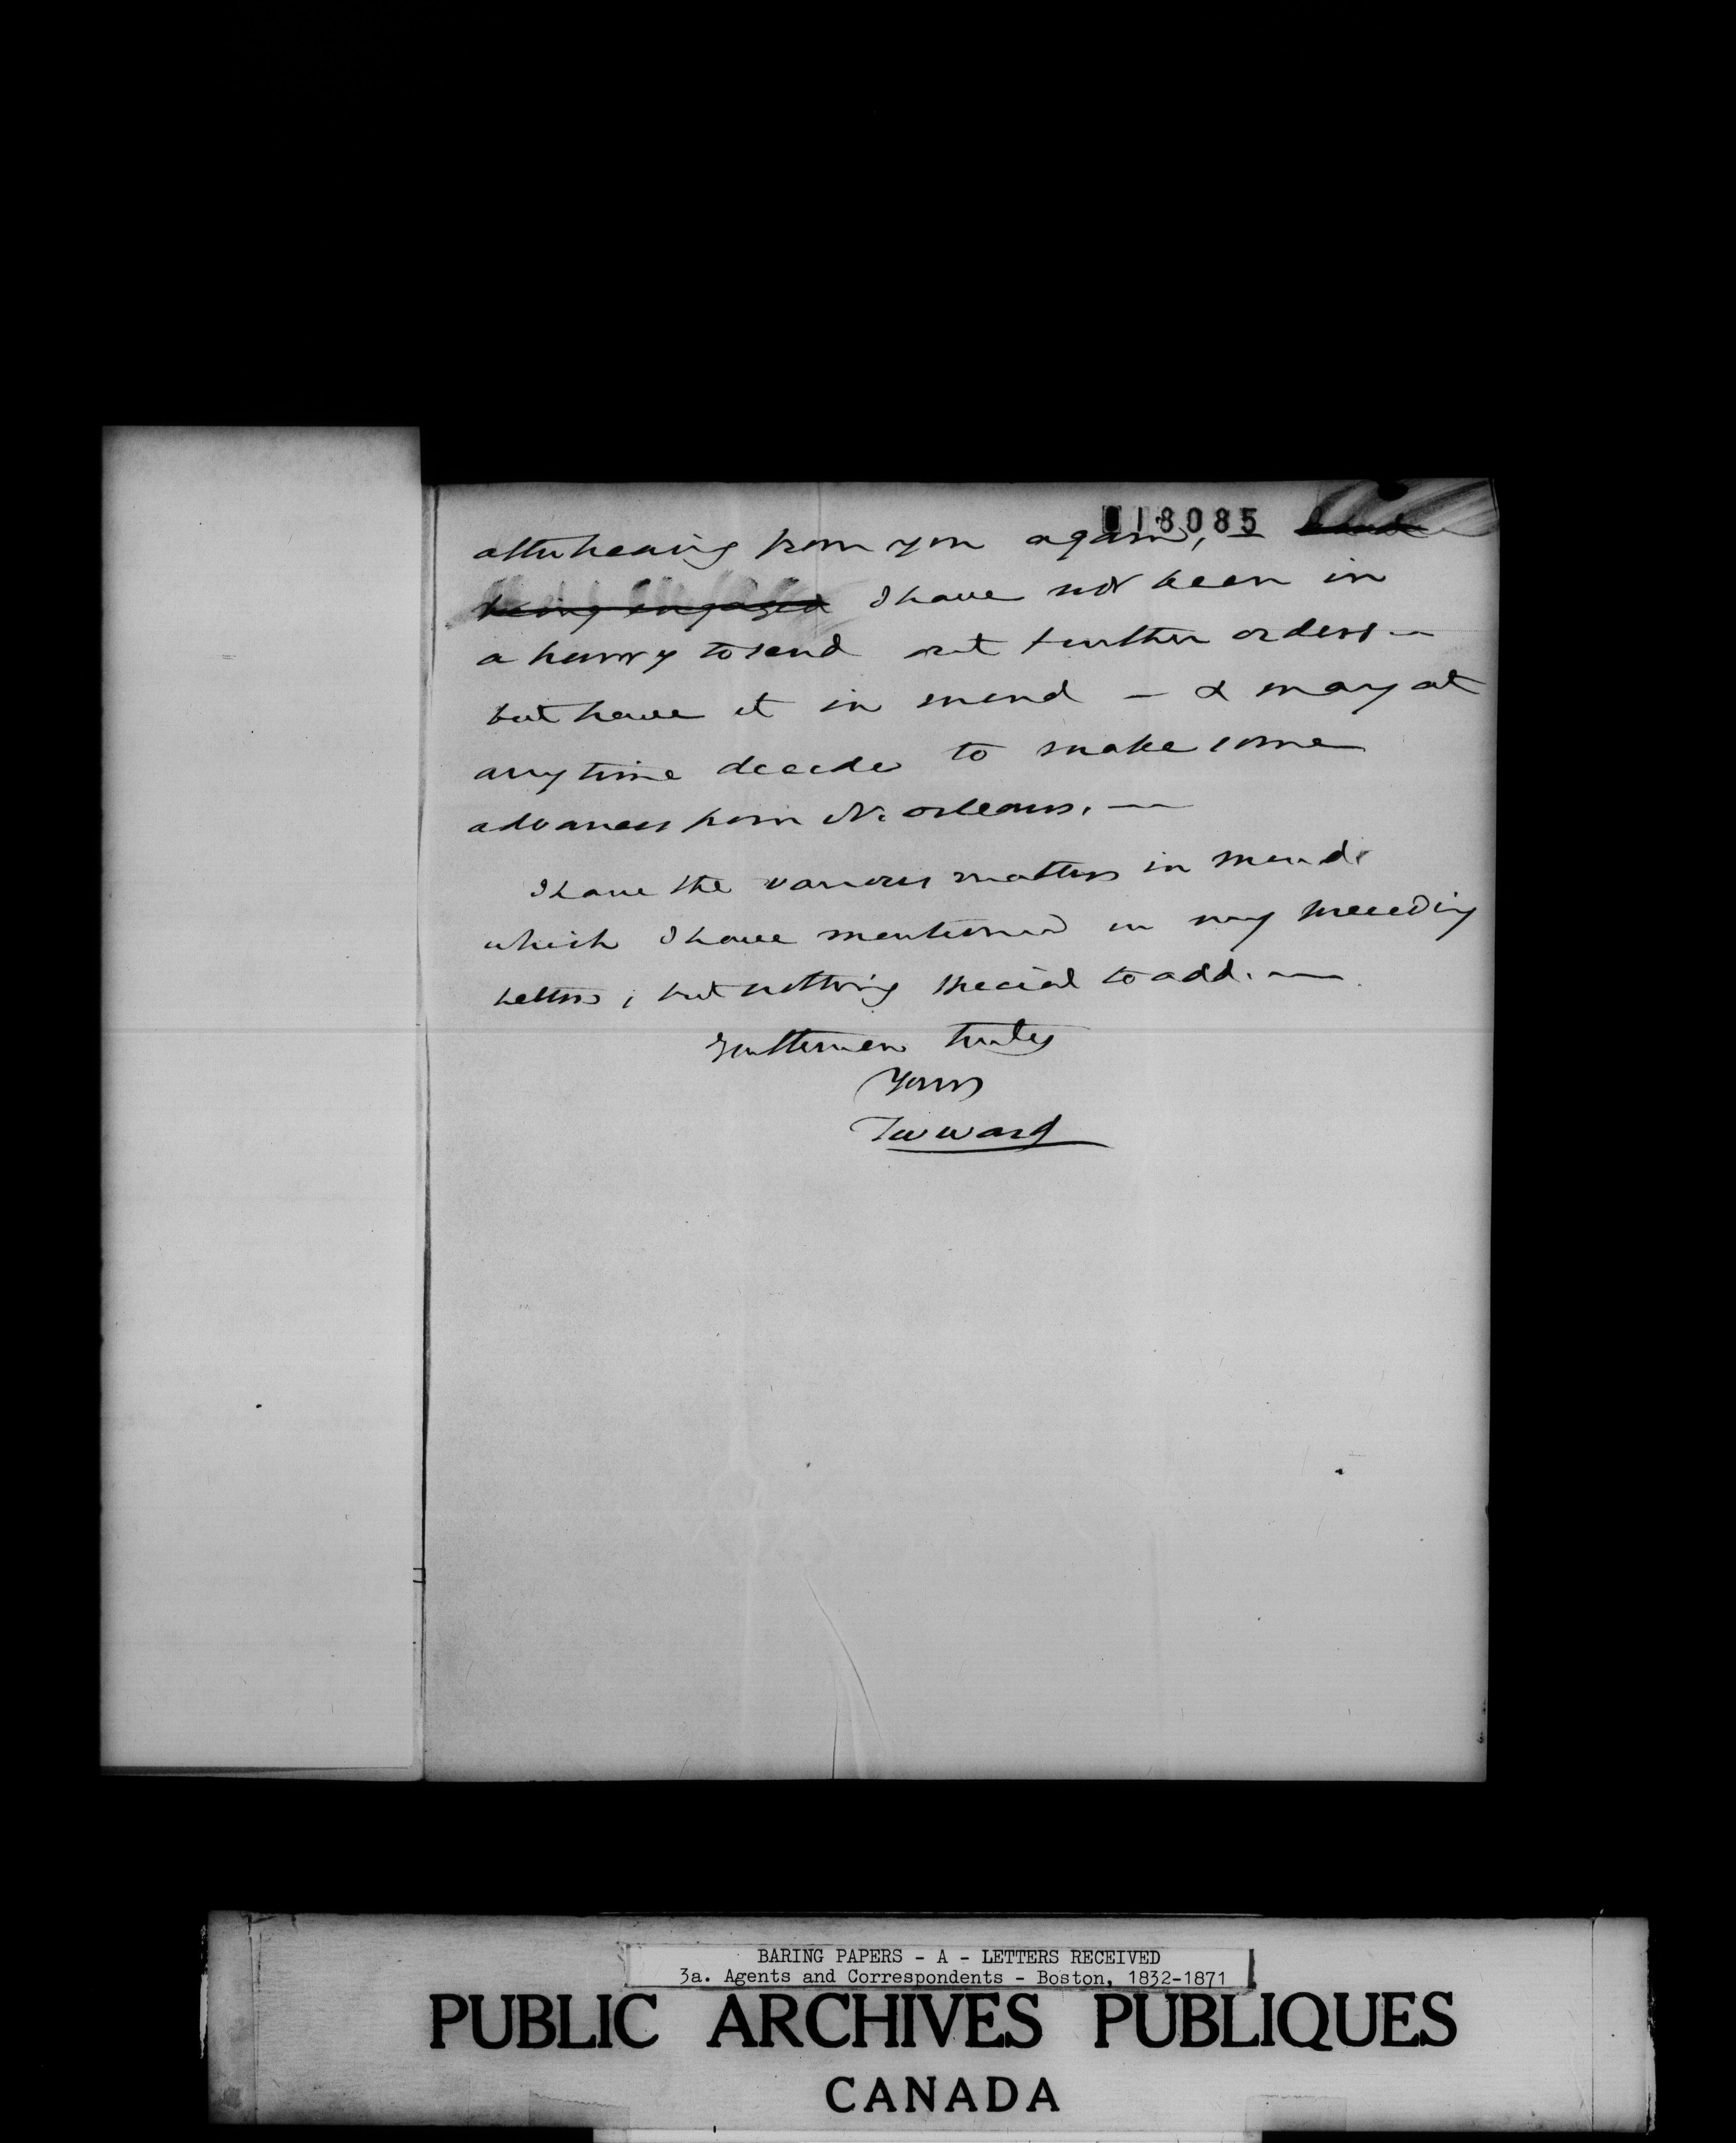 018085
after hearing from you again, —
being engaged I have not been in
a hurry to send out further orders —
but have it in mind — & may at
any time decide to make some
advances from N. Orleans. —
I have the various matters in mind
which I have mentioned in my preceding
letters; but nothing special to add. —
Gentlemen truly
Yours
TWWard
BARING PAPERS - A - LETTERS RECEIVED
3a. Agents and Correspondents - Boston, 1832-1871
PUBLIC ARCHIVES PUBLIQUES
CANADA